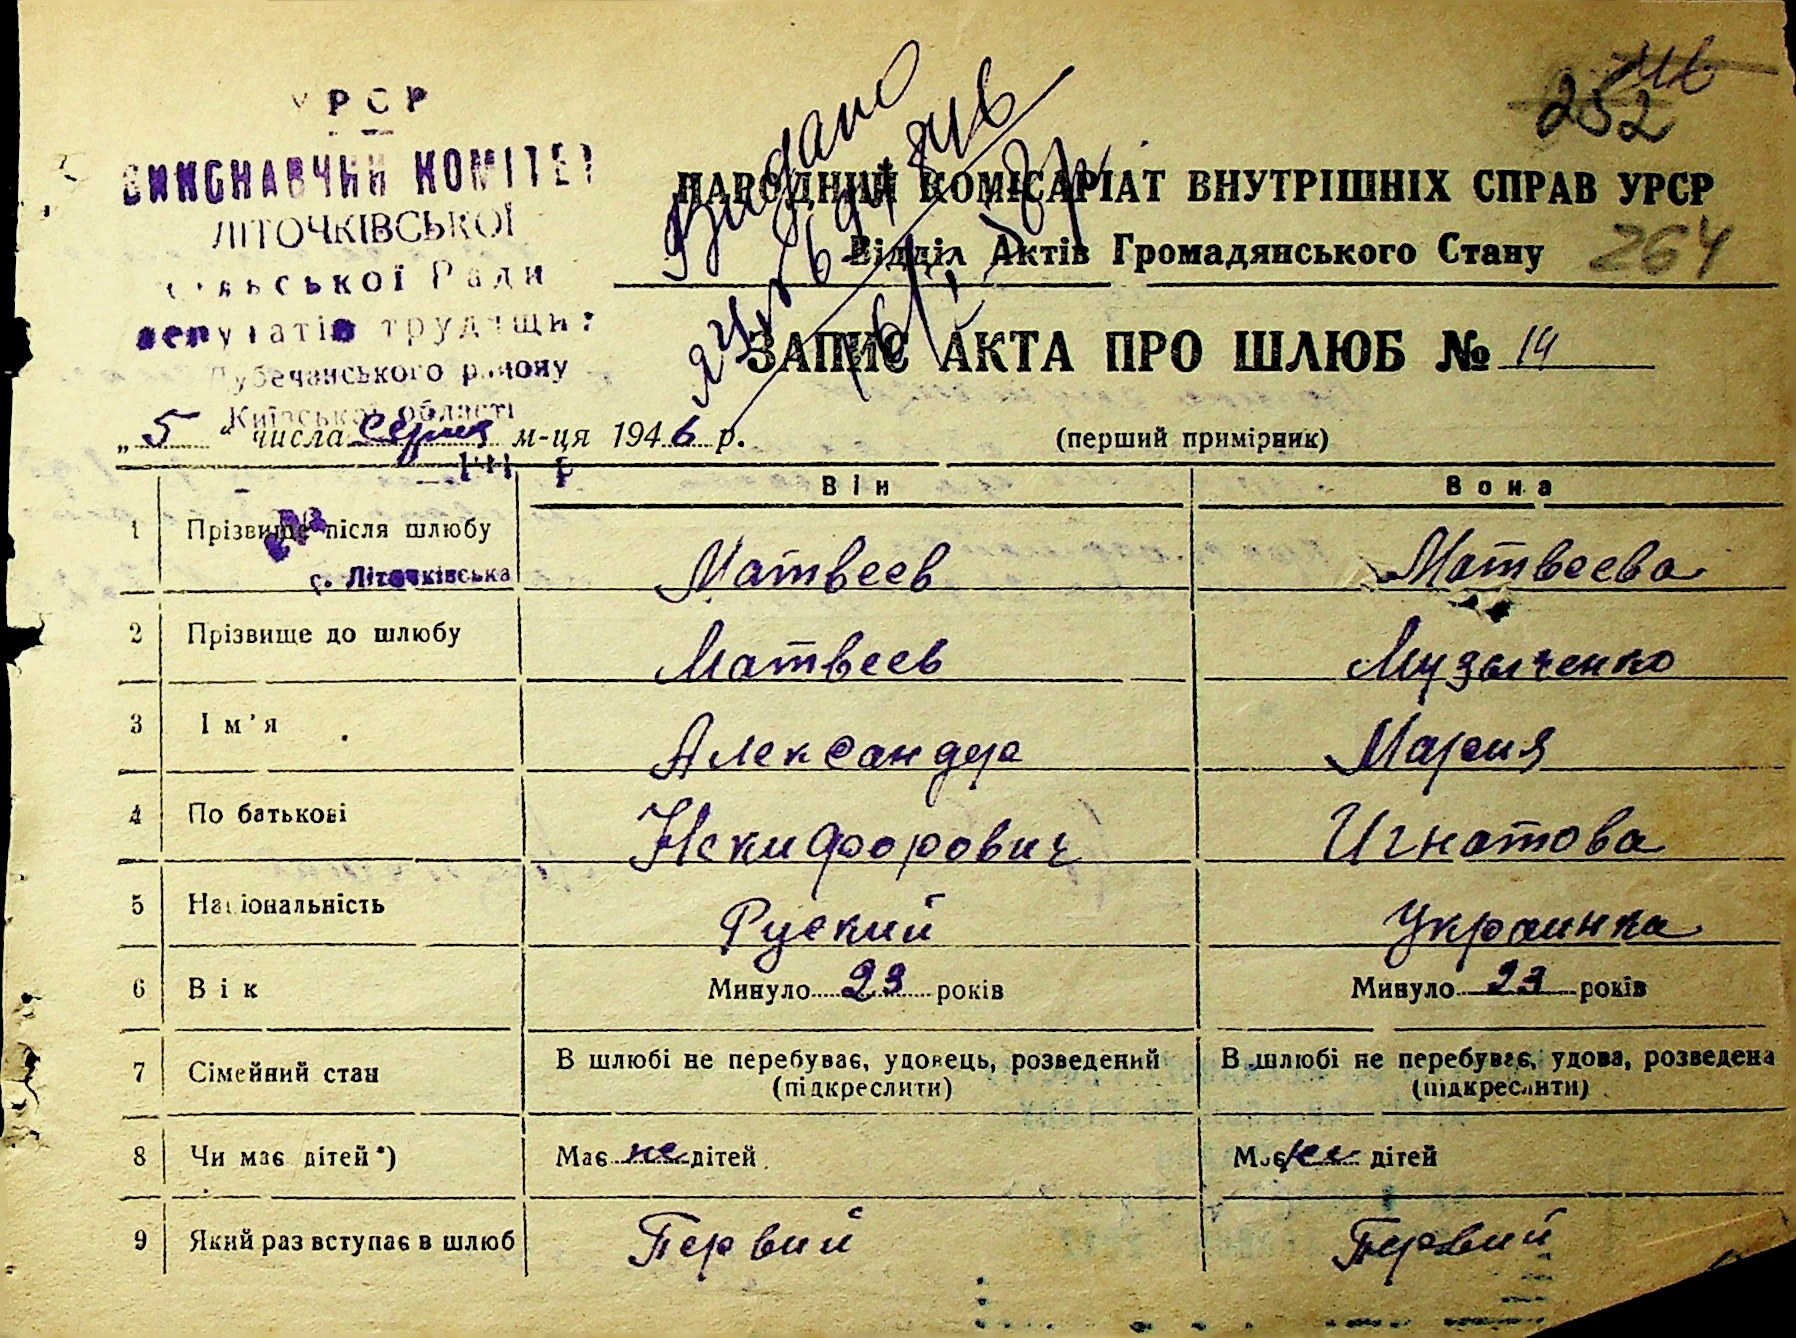 УРСР
ВИКОНАВЧИЙ КОМІТЕТ
ЛІТОЧКІВСЬКОЇ
сільської Ради
депутатів трудящих
району
Київської області
с. Літочківська
Видано
252
264
НАРОДНИЙ КОМІСАРІАТ ВНУТРІШНІХ СПРАВ УРСР
Відділ Актів Громадянського Стану
ЗАПИС АКТА ПРО ШЛЮБ № 14
„ 5 “ числа серпня м-ця 1946 р.
(перший примірник)
Він Вона
1 Прізвище після шлюбу Матвеев Матвеева
2 Прізвище до шлюбу Матвеев Музыченко
3 Ім'я Александр Мария
4 По батькові Некифорович Игнатова
5 Національність Руский Украинка
6 Вік Минуло 23 років Минуло 23 років
7 Сімейний стан В шлюбі не перебуває, удовець, розведений (підкреслити) В шлюбі не перебуває, удова, розведена (підкреслити)
8 Чи має дітей*) Має не дітей Має не дітей
9 Який раз вступає в шлюб Первий Первий